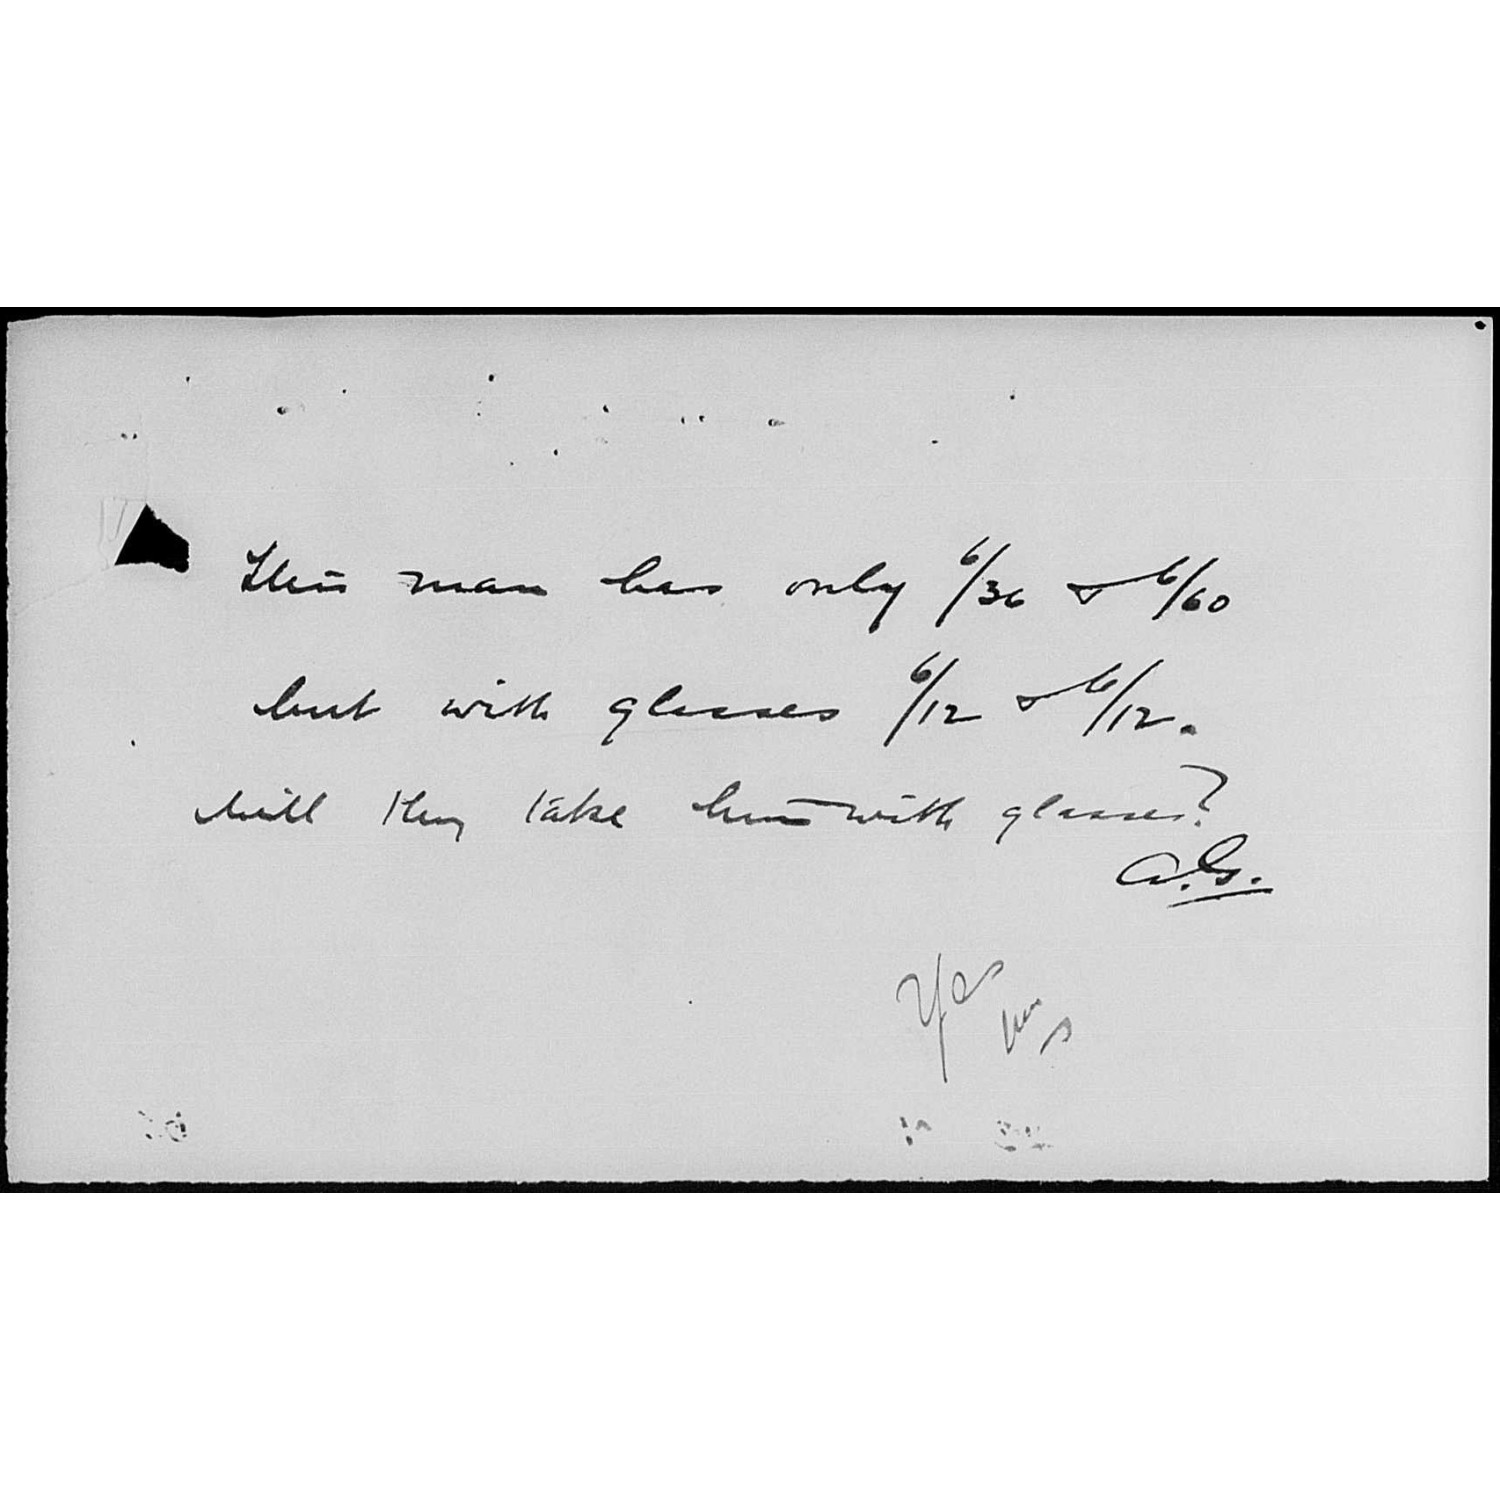 This man has only 6/36 & 6/60
but with glasses 6/12 & 6/12.
Will they take him with glasses?
A.G.
Yes